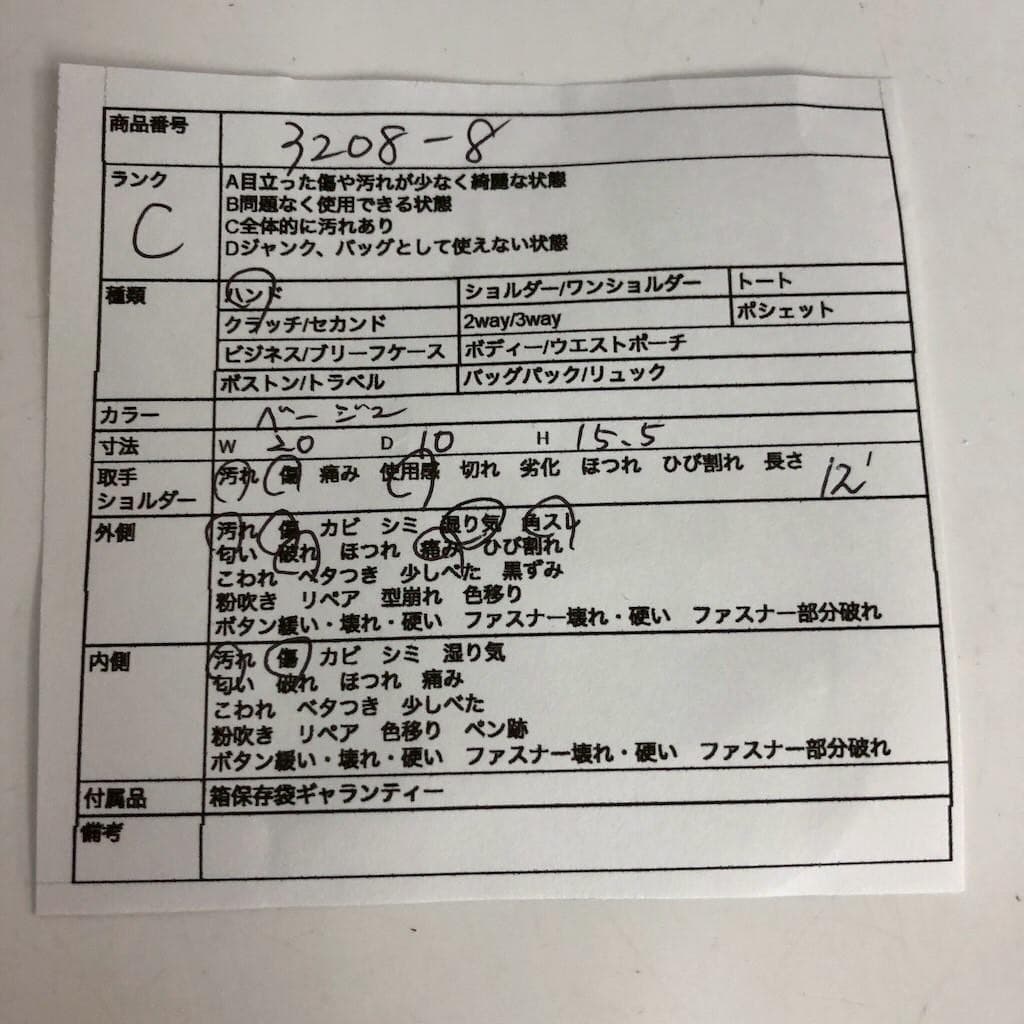 商品番号 3208-8
ランク C
A目立った傷や汚れが少なく綺麗な状態
B問題なく使用できる状態
C全体的に汚れあり
Dジャンク、バッグとして使えない状態
種類 ハンド ショルダー/ワンショルダー トート
クラッチ/セカンド 2way/3way ポシェット
ビジネス/ブリーフケース ボディー/ウエストポーチ
ボストン/トラベル バッグパック/リュック
カラー ベージュ
寸法 W 20 D 10 H 15.5
取手 汚れ 傷 痛み 使用感 切れ 劣化 ほつれ ひび割れ 長さ 12
ショルダー
外側 汚れ 傷 カビ シミ 湿り気 角スレ
匂い 破れ ほつれ 痛み ひび割れ
こわれ ベタつき 少しべた 黒ずみ
粉吹き リペア 型崩れ 色移り
ボタン緩い・壊れ・硬い ファスナー壊れ・硬い ファスナー部分破れ
内側 汚れ 傷 カビ シミ 湿り気
匂い 破れ ほつれ 痛み
こわれ ベタつき 少しべた
粉吹き リペア 色移り ペン跡
ボタン緩い・壊れ・硬い ファスナー壊れ・硬い ファスナー部分破れ
付属品 箱保存袋ギャランティー
備考